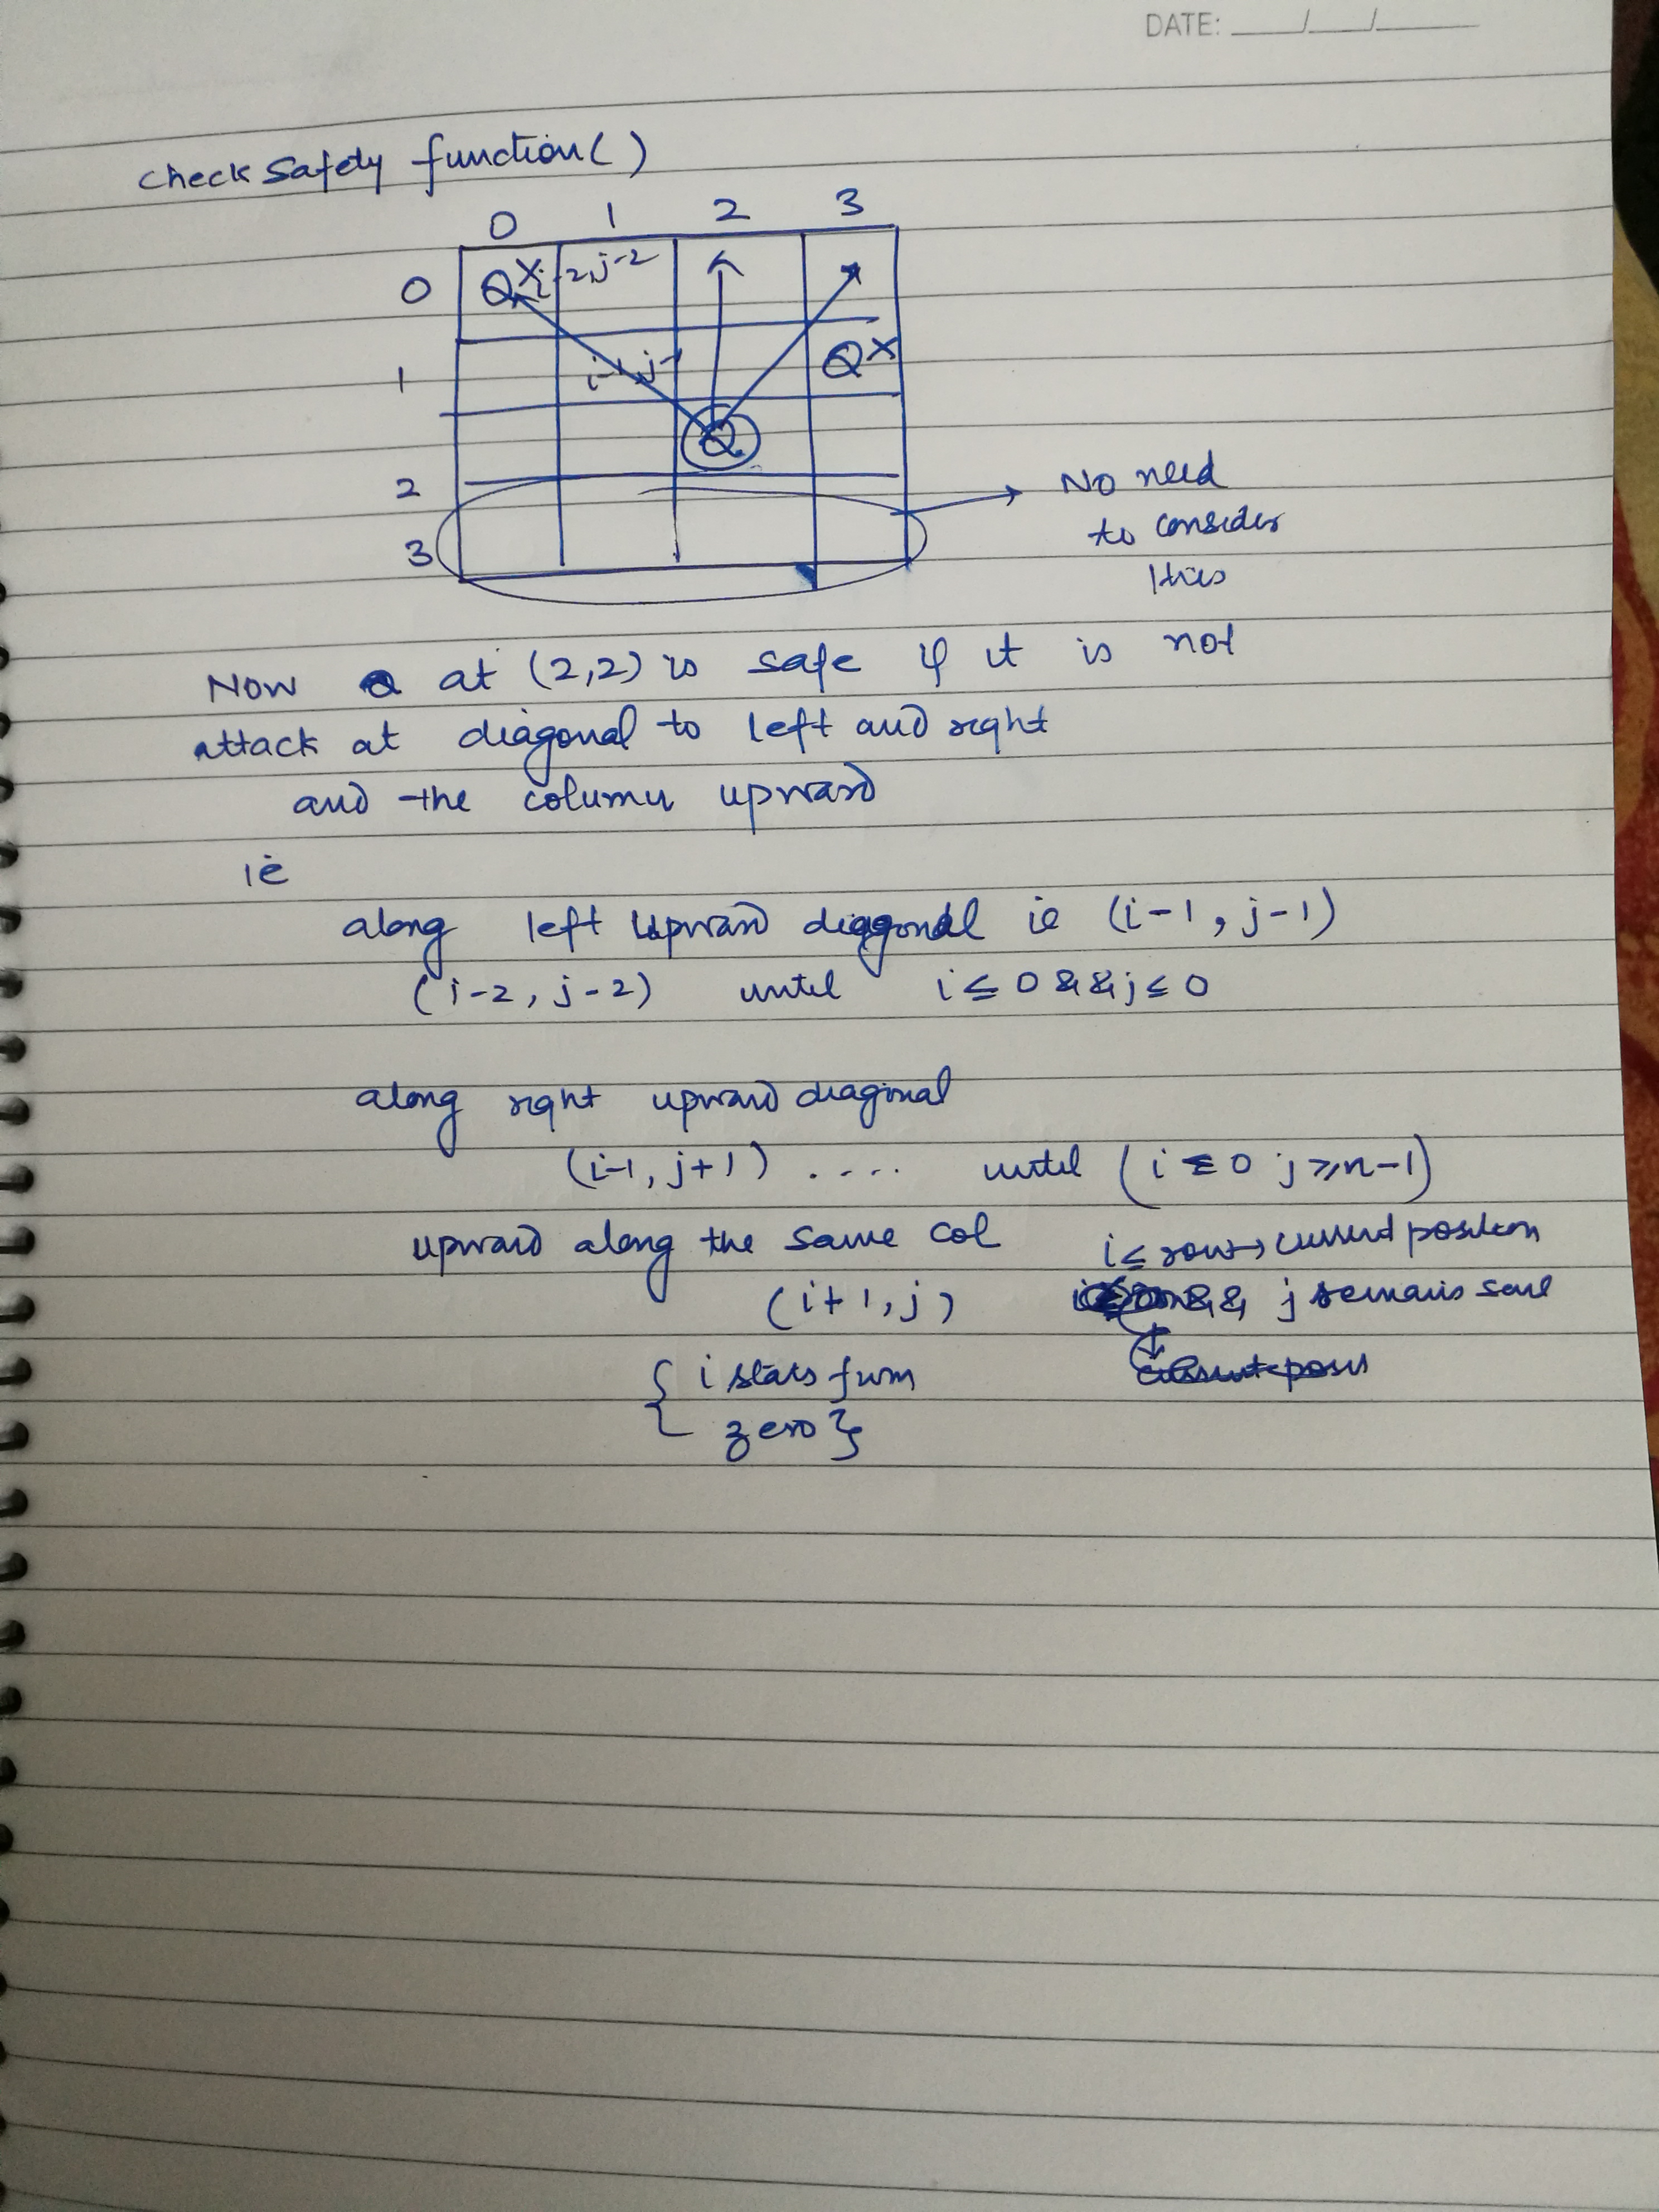 DATE: __/__/__
check Safety function()
0 1 2 3
0 Q X i-2, j-2
1 i-1, j-1 Q X
Q
2
3
No need
to consider
this
Now Q at (2,2) is safe if it is not
attack at diagonal to left and right
and the column upward
ie
along left upward diagonal ie (i-1, j-1)
(i-2, j-2) until i ≤ 0 && j ≤ 0
along right upward diagonal
(i-1, j+1) .... until (i ≤ 0 j ≥ n-1)
upward along the same col i ≤ row → current position
(i+1, j) && j remains
{ i starts from
zero }